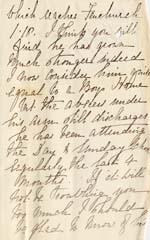 which reaches Fenchurch
1.50. I think you will
find he has grown
much stronger & indeed
I now consider him quite
equal to a Boys Home
but the abscess under
his arm still discharges
he has been attending
the Day & Sunday School
regularly the last 4
months. If it will
not be troubling you
too much I should
be glad to know if his